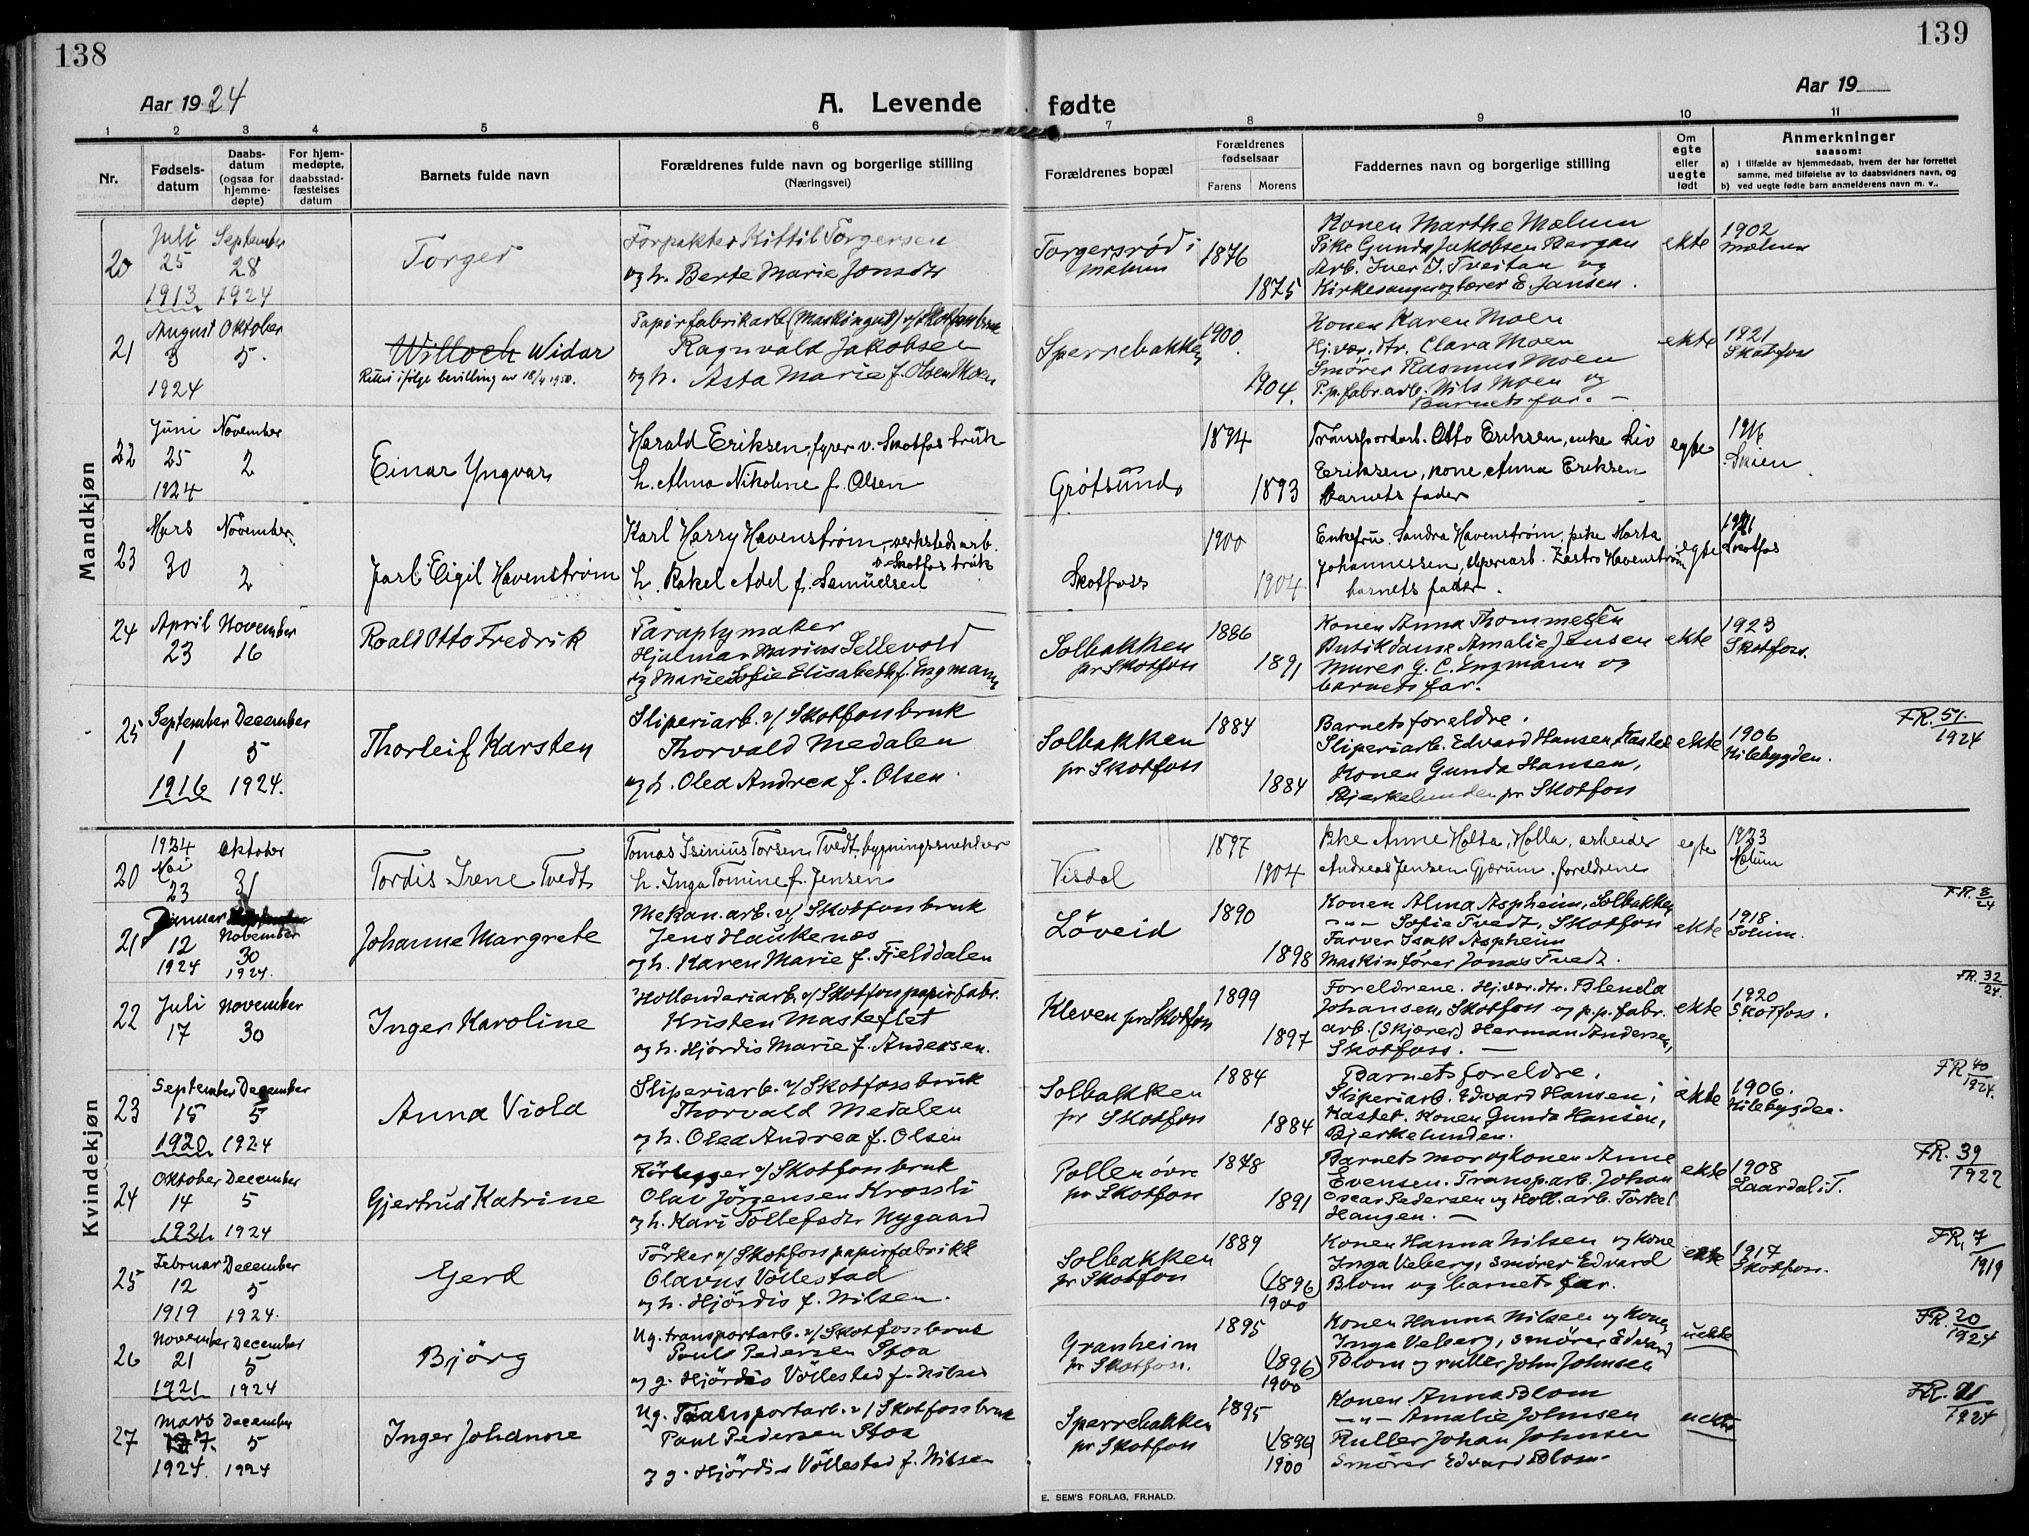 138
139
Aar 1924
A. Levende fødte
Aar 19
1 2 3 4 5 6 7 8 9 10 11
Nr.
Fødsels-datum
Daabs-datum (ogsaa for hjemme-døpte)
For hjem-medøpte, daabsstad-fæstelses datum
Barnets fulde navn
Forældrenes fulde navn og borgerlige stilling (Næringsvei)
Forældrenes bopæl
Forældrenes fødselsaar
Farens Morens
Faddernes navn og borgerlige stilling
Om egte eller uegte født
Anmerkninger
saasom:
a) I tilfælde av hjemmedaab, hvem der har forrettet samme, med tilføielse av to daabsvidners navn, og
b) ved uegte fødte barn anmelderens navn m. v..
Mandkjøn
20
Juli 25 1913
September 28 1924
Torger
Forpakter Kittil Torgersen
og h. Berte Marie Jonsdtr
Torgersrød i Mælum
1876
1875
Konen Marthe Mælum
Pike Gunda Jakobsen Bergan
Arb. Iver J. Tveitan og
Kirkesanger og lærer E. Jansen.
ekte
1902 Mælum
21
August 3 1924
Oktober 5.
Willoch Widar
Rettet ifølge bevilling av 18/4 1950.
Papirfabrikarb. (Maskingut) v/ Skotfoss bruk
Ragnvald Jakobsen
og h. Asta Marie f. Olsen Moen
Sperrebakken
1900
1904.
Konen Karen Moen
Hj.vær. dtr. Clara Moen
Smører Rasmus Moen
P.p.fabr.arb. Nils Moen og
Barnets far. -
ekte
1921 Skotfoss
22
Juni 25 1924
November 2
Einar Yngvar
Harald Eriksen, fyrer v. Skotfos bruk
h. Alma Nikoline f. Olsen
Grøtsund
1894
1893
Transportarb. Otto Eriksen, enke Liv
Eriksen, kone Anna Eriksen
barnets fader
egte
1916 Skien
23
Mars 30
November 2
Jarl Eigil Havenstrøm
Karl Harry Havenstrøm, verkstedsarb.
v. Skotfos bruk
h. Rakel Adel f. Samuelsen
Skotfoss
1900
1904
Enkefru Sandra Havenstrøm, pike Marta
Johannessen, sliperiarb. Zastro Havenstrøm
barnets fader.
egte
1921 Skotfos
24
April 23
November 16
Roald Otto Fredrik
Paraplymaker
Hjalmar Marius Sellevold
og Marie Sofie Elisabeth f. Engmann
Solbakken pr Skotfoss
1886
1891
Konen Anna Thommesen
Butikdame Amalie Jensen
Murer G. C. Engmann og
barnets far.
ekte
1923 Skotfoss.
25
September 1 1916
December 5 1924.
Thorleif Karsten
Sliperiarb. v/ Skotfoss bruk
Thorvald Medalen
og h. Olea Andrea f. Olsen.
Solbakken pr Skotfoss
1884
1884
Barnets foreldre.
Sliperiarb. Edvard Hansen, Kastet
Konen Gunda Hansen,
Bjerkelunden pr Skotfoss
ekte
1906 Kilebygden.
FR. 51/1924
Kvindekjøn
20
1924 Mai 23
Oktober 31
Tordis Irene Tvedt
Tomas Isinius Torsen Tvedt, bygningssnekker
h. Inga Tomine f. Jensen
Visdal
1897
1904
Pike Anne Holta, Holla, arbeider
Andreas Jensen Gjerum, foreldrene
egte
1923 Mælum
21
Januar 12 1924
November 30 1924.
Johanne Margrete
Mekan. arb. v/ Skotfoss bruk
Jens Haukenæs
og h. Karen Marie f. Fjelddalen
Løveid
1890
1898
Konen Alma Aspheim, Solbakken
-"- Sofie Tvedt, Skotfoss
Farver Isak Aspheim
Maskinfører Jonas Tvedt.
ekte
1918. Solum.
FR. 8/24
22
Juli 17
November 30
Inger Karoline
Hollenderiarb. v/ Skotfoss papirfabr.
Kristen Masteflet
og h. Hjørdis Marie f. Andersen.
Kleven pr Skotfoss
1899
1897
Foreldrene. Hj.vær. dtr. Blenda
Johansen, Skotfoss og p.p. fabr.
arb. (Skjærer) Herman Andersen,
Skotfoss. -
ekte
1920 Skotfoss.
FR. 32/24.
23
September 15 1920
December 5 1924
Anna Viola
Sliperiarb. v/ Skotfoss bruk
Thorvald Medalen
og h. Olea Andrea f. Olsen
Solbakken pr Skotfoss
1884
1884
Barnets foreldre.
Sliperiarb. Edvard Hansen,
Kastet. Konen Gunda Hansen,
Bjerkelunden.
ekte
1906. Kilebygden.
FR 40/1924.
24
Oktober 14 1921
December 5 1924
Gjertrud Katrine
Rörlegger v/ Skotfoss bruk
Olav Jörgensen Krossli
og h. Kari Tollefsdtr Nygaard
Pollen övre pr Skotfoss
1878
1891
Barnets mor og konen Anne
Evensen. Transp.arb. Johan
Oscar Pedersen og Holl.arb. Torkel
Haugen. -
ekte
1908 Laardal i T.
FR. 39/1922
25
Februar 12 1919
December 5 1924.
Gerd
Törker v/ Skotfoss papirfabrikk
Olavus Völlestad
og h. Hjördis f. Nilsen.
Solbakken pr Skotfoss
1889
(1896) 1900
Konen Hanna Nilsen og kone
Inga Veberg, smører Edvard
Blom og barnets far.
ekte
1917 Skotfoss.
FR. 7/1919
26
November 21 1921
December 5 1924
Björg
Ug. transportarb. v/ Skotfoss bruk
Paul Pedersen Stoa
og g. Hjördis Völlestad f. Nilsen
Granheim pr Skotfoss.
1895
(1896) 1900
Konen Hanna Nilsen og Konen
Inga Veberg, smører Edvard
Blom og ruller John Johnsen
uekte
FR. 20/1924
27
Mars 7. 1924.
December 5 1924
Inger Johanne
Ug. Transportarb. v/ Skotfoss bruk
Paul Pedersen Stoa
og g. Hjördis Völlestad f. Nilsen
Sperrebakken pr Skotfoss
1895
(1896) 1900
Konen Anna Blom
-"- Amalie Johnsen
Ruller Johan Johnsen
Smører Edvard Blom.
uekte
FR. 21/1924
E. SEM'S FORLAG, FR.HALD.